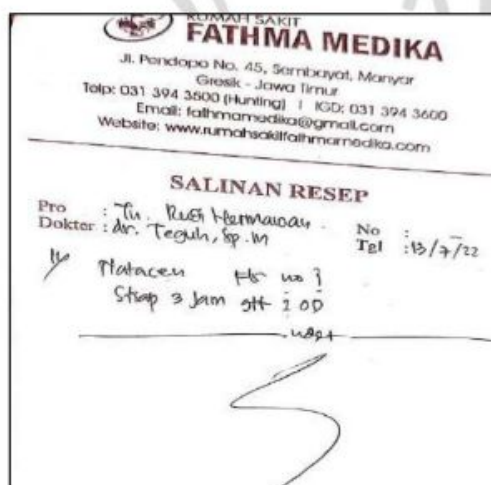 RUMAH SAKIT
FATHMA MEDIKA
Jl. Pendopo No. 45, Sembayat, Manyar
Gresik - Jawa Timur
Telp: 031 394 3500 (Hunting) | IGD: 031 394 3600
Email: fathmamedika@gmail.com
Website: www.rumahsakitfathmamedika.com
SALINAN RESEP
Pro : Tn. Rudi Hermawan. No :
Dokter : dr. Teguh, Sp.M Tgl : 13/7/22
R/ Natacen no
Stiap 3 Jam gtt OD